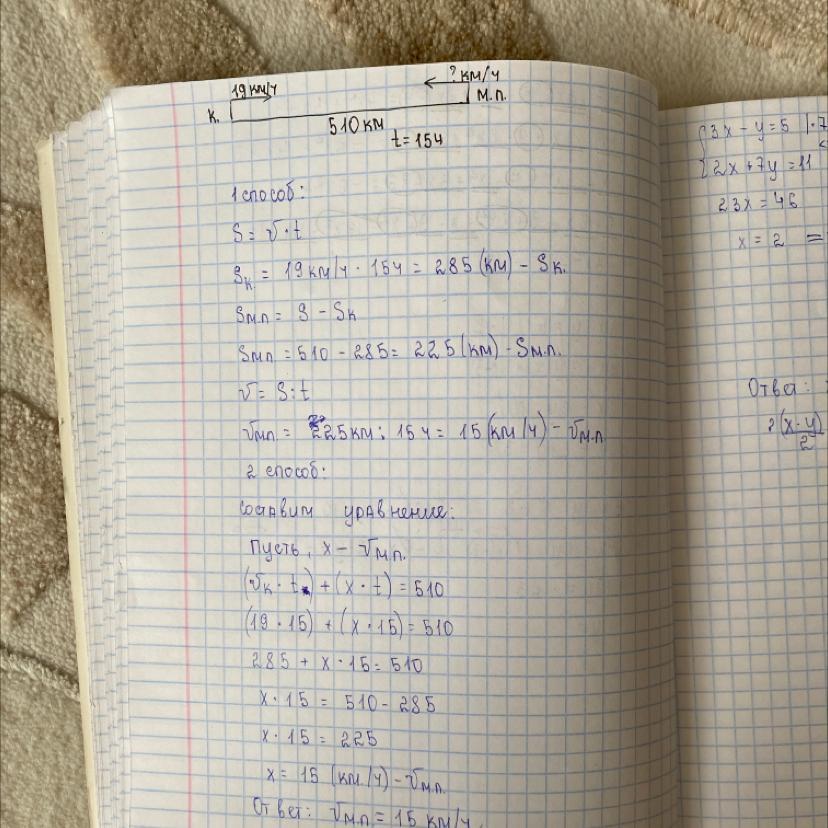 19 км/ч
? км/ч
К.
м.п.
510 км
t = 15ч
1 способ:
S = v · t
Sк. = 19 км/ч · 15ч = 285 (км) - Sк.
Sм.п = S - Sк
Sмп = 510 - 285 = 225 (км) - Sм.п.
v = S : t
vмп = 225 км : 15ч = 15 (км/ч) - vм.п.
2 способ:
составим уравнение:
Пусть, x - vм.п.
(vк · t) + (x · t) = 510
(19 · 15) + (x · 15) = 510
285 + x · 15 = 510
x · 15 = 510 - 285
x · 15 = 225
x = 15 (км/ч) - vм.п.
Ответ: vм.п = 15 км/ч.
{3x - y = 5 | ·7
{2x + 7y = 11
23x = 46
x = 2 =
Отве
(x - y)
2